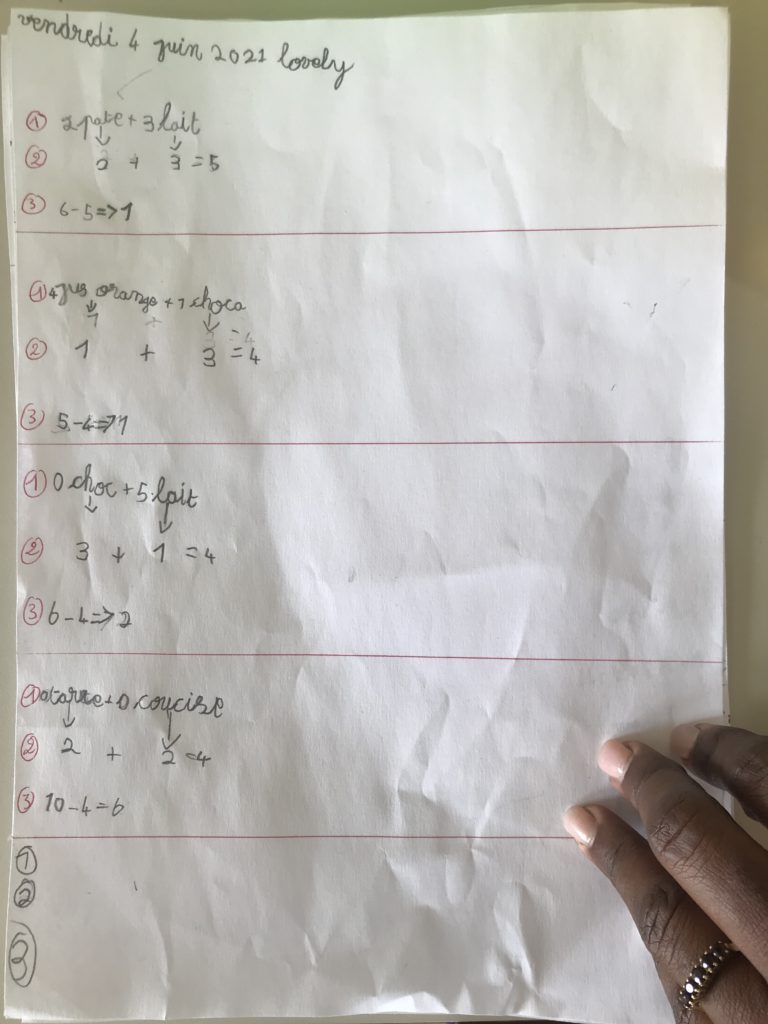 vendredi 4 juin 2021 lovely
① 2 pate + 3 lait
② 2 + 3 = 5
③ 6 - 5 => 1
① 4 jus orange + 1 choco
1
② 1 + 3 = 4
③ 5 - 4 => 1
① 0 choc + 5 lait
② 3 + 1 = 4
③ 6 - 4 => 2
①
② 2 + 2 = 4
③ 10 - 4 = 6
①
②
③